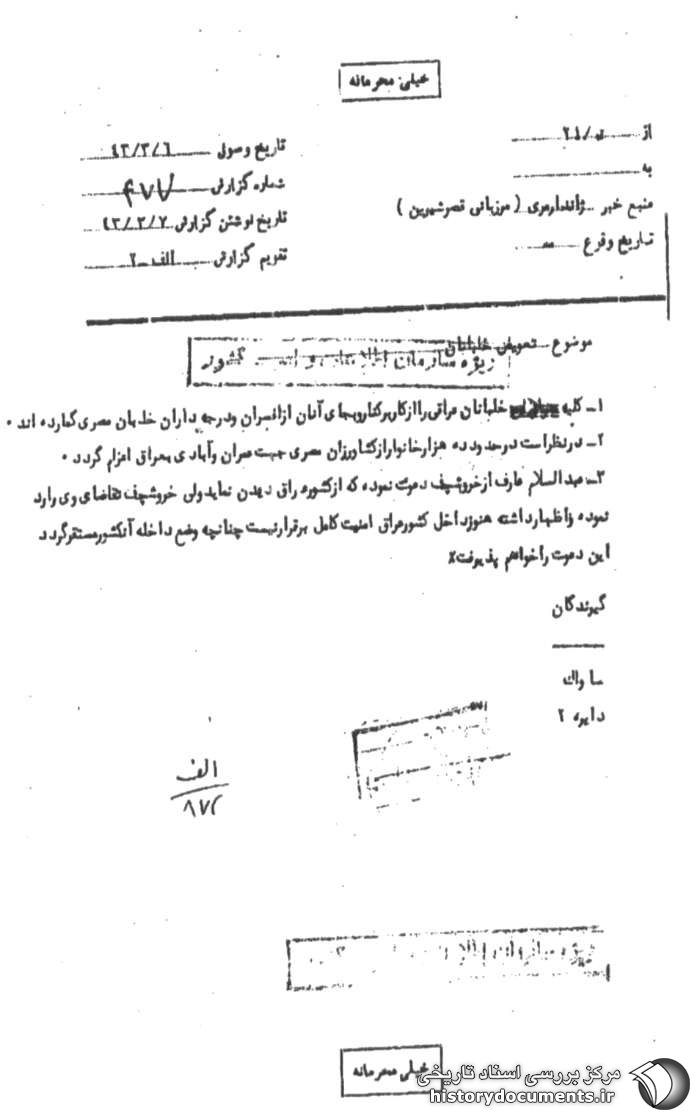 خیلی محرمانه
از
تاریخ وصول ۴۳/۳/۶
به
شماره گزارش ۴۷۷
منبع خبر ژاندارمری ( مرزبانی قصرشیرین )
تاریخ نوشتن گزارش ۴۳/۳/۷
تاریخ وقوع
تقویم گزارش الف-۲
موضوع تعویض خلبانان
ویژه سازمان اطلاعات و امنیت کشور
۱- کلیه خلبانان عراقی را از کار برکنار و بجای آنان از افسران و درجه داران خلبان مصری گمارده اند ۰
۲- در نظر است در حدود ده هزار خانوار از کشاورزان مصری جهت عمران و آبادی بعراق اعزام گردد ۰
۳- عبدالسلام عارف از خروشچف دعوت نموده که از کشور عراق دیدن نماید ولی خروشچف تقاضای وی را رد
نموده و اظهار داشته هنوز داخل کشور عراق امنیت کامل برقرار نیست چنانچه وضع داخله آنکشور مستقر گردد
این دعوت را خواهم پذیرفت٪
گیرندگان
ساواک
دایره ۲
الف
۸۷۲
خیلی محرمانه
مرکز بررسی اسناد تاریخی
historydocuments.ir